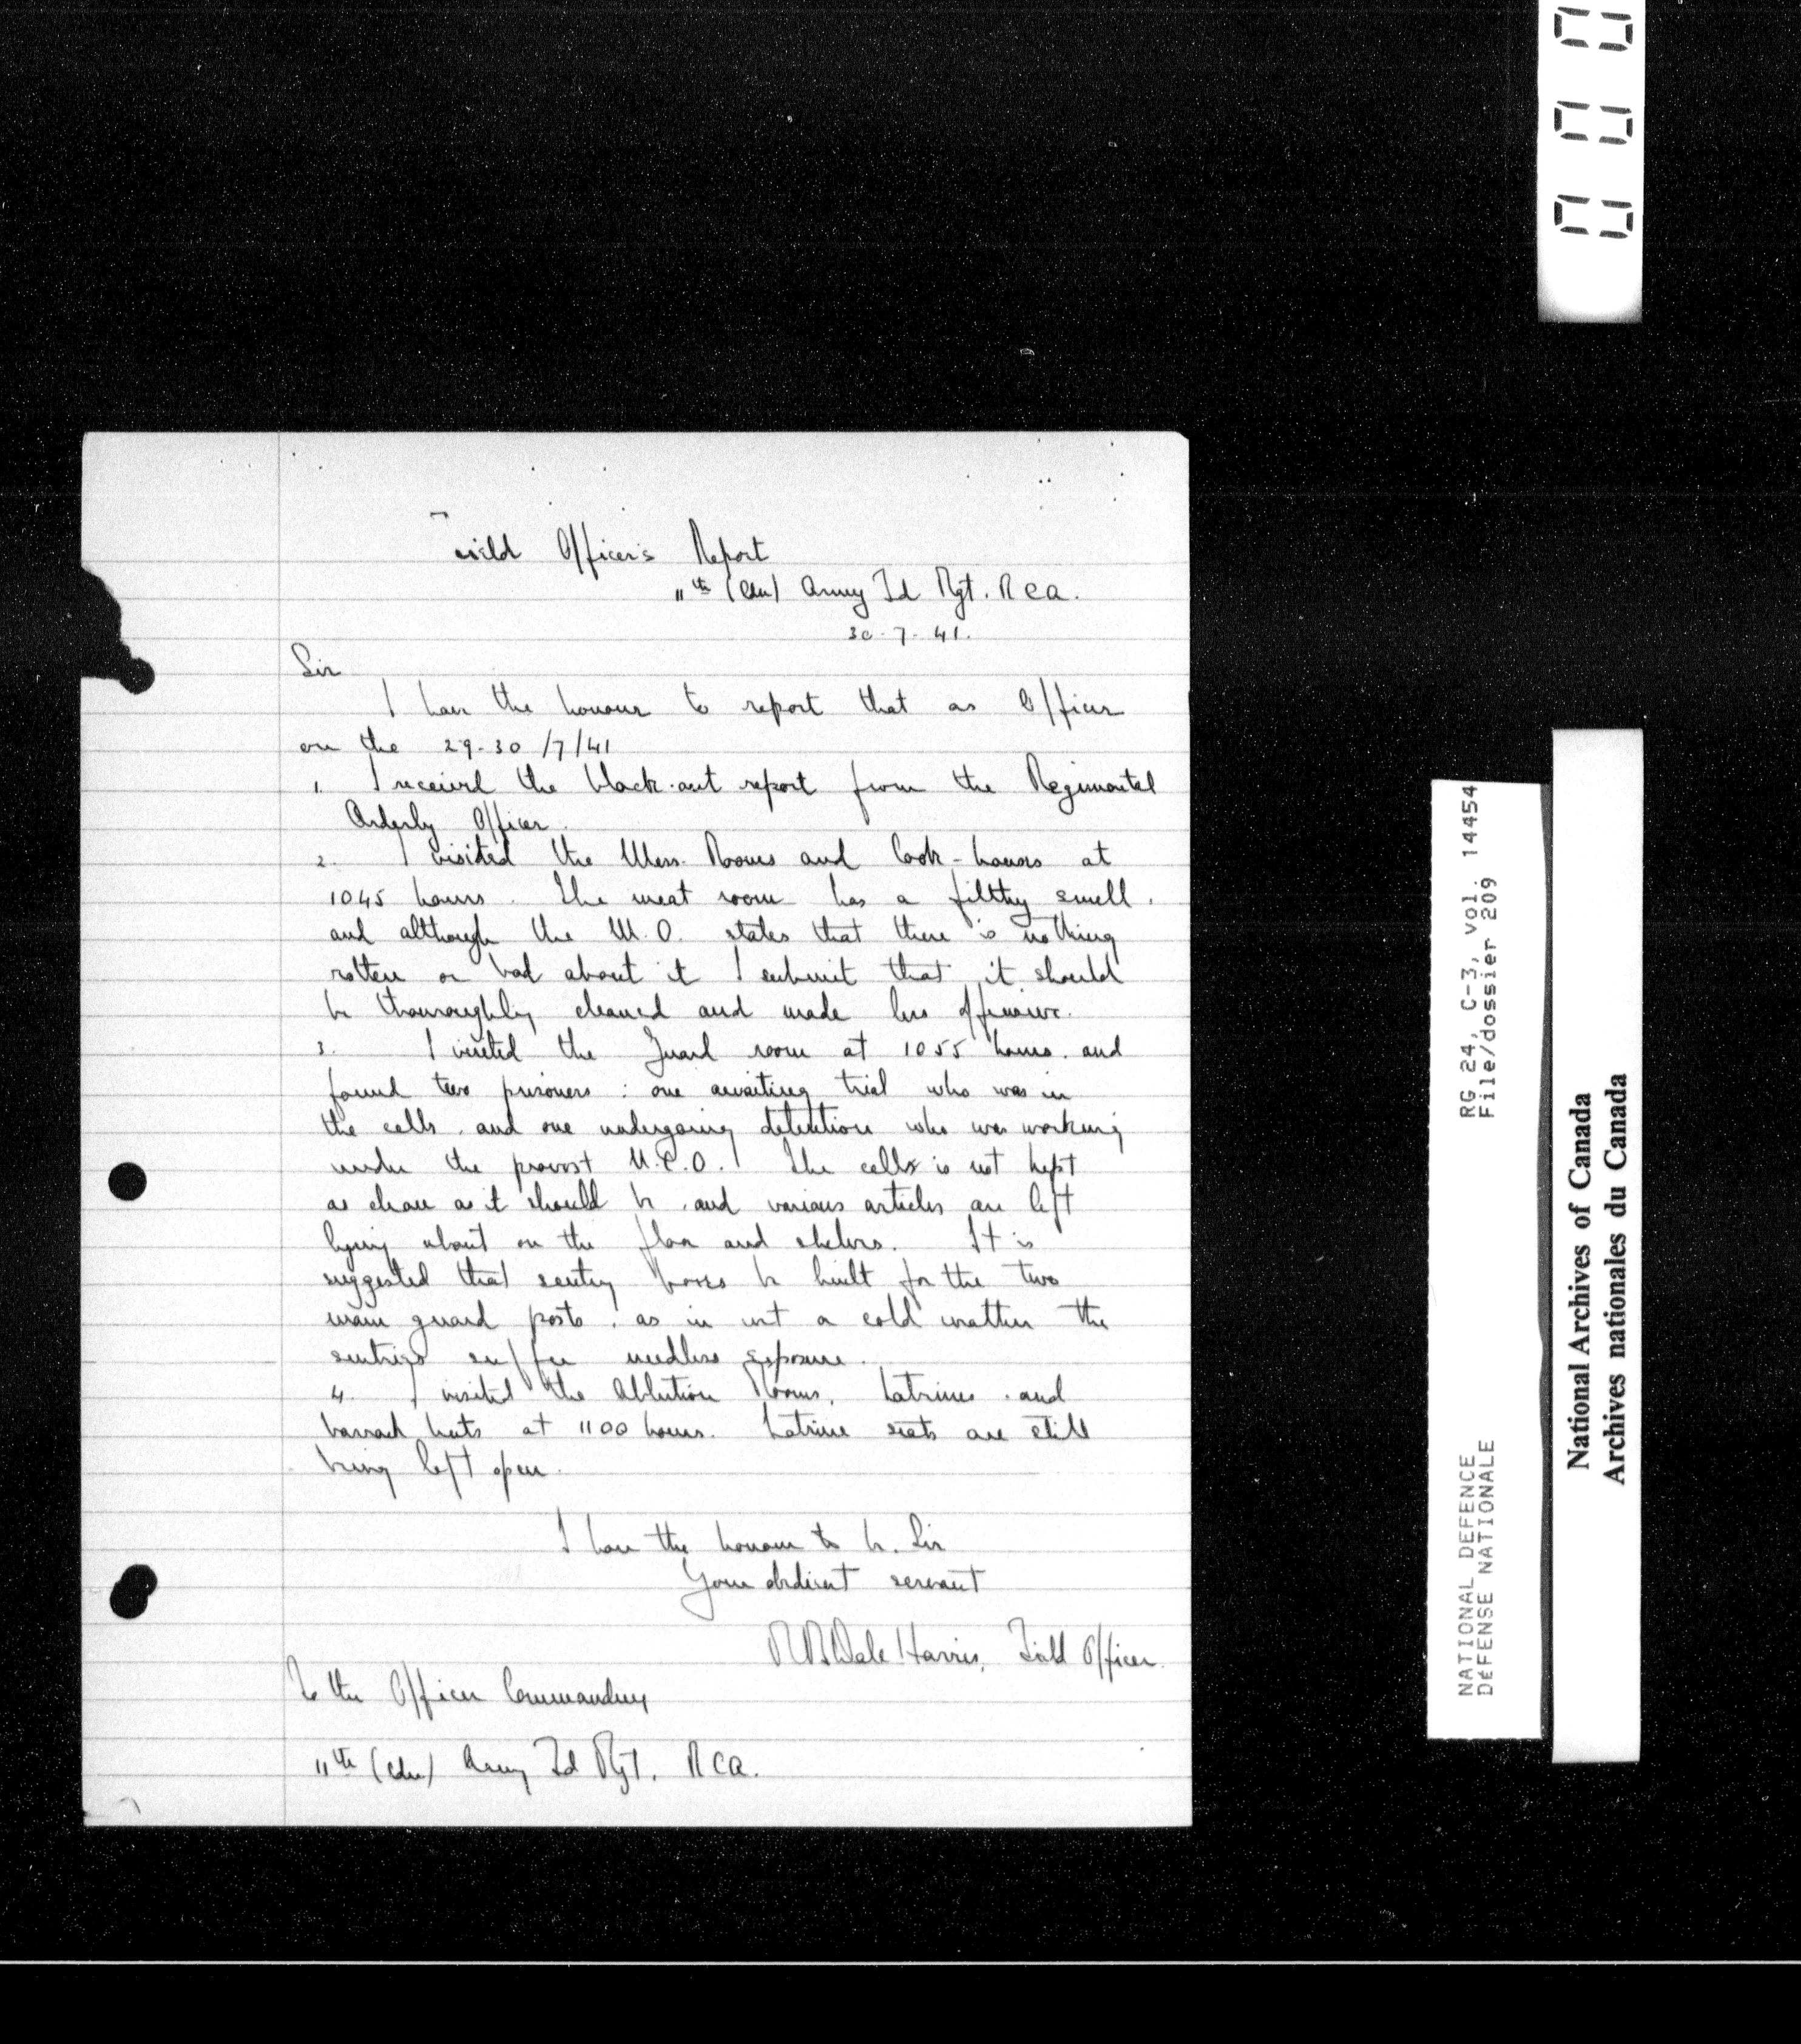 Field Officer's Report
11th (Cdn) Army Fd Rgt. RCA.
30-7-41.
Sir
I have the honour to report that as Officer
on the 29-30/7/41
1. I received the black-out report from the Regimental
Orderly Officer.
2. I visited the Mess-Rooms and Cook-houses at
1045 hours. The meat room has a filthy smell,
and although the M.O. states that there is nothing
rotten or bad about it I submit that it should
be thoroughly cleaned and made less offensive.
3. I visited the Guard room at 1055 hours, and
found two prisoners: one awaiting trial who was in
the cells, and one undergoing detention who was working
under the provost N.C.O. The cells is not kept
as clean as it should be, and various articles are left
lying about on the floor and shelves. It is
suggested that sentry boxes be built for the two
main guard posts, as in wet or cold weather the
sentries suffer needless exposure.
4. I visited the Ablution Rooms, Latrines, and
barrack huts at 1100 hours. Latrine seats are still
being left open.
I have the honour to be, Sir
Your obedient servant
Dale Harris, Field Officer.
To the Officer Commanding
11th (Cdn) Army Fd Rgt. RCA.
RG 24, C-3, vol. 14454
File/dossier 209
NATIONAL DEFENCE
DÉFENSE NATIONALE
National Archives of Canada
Archives nationales du Canada